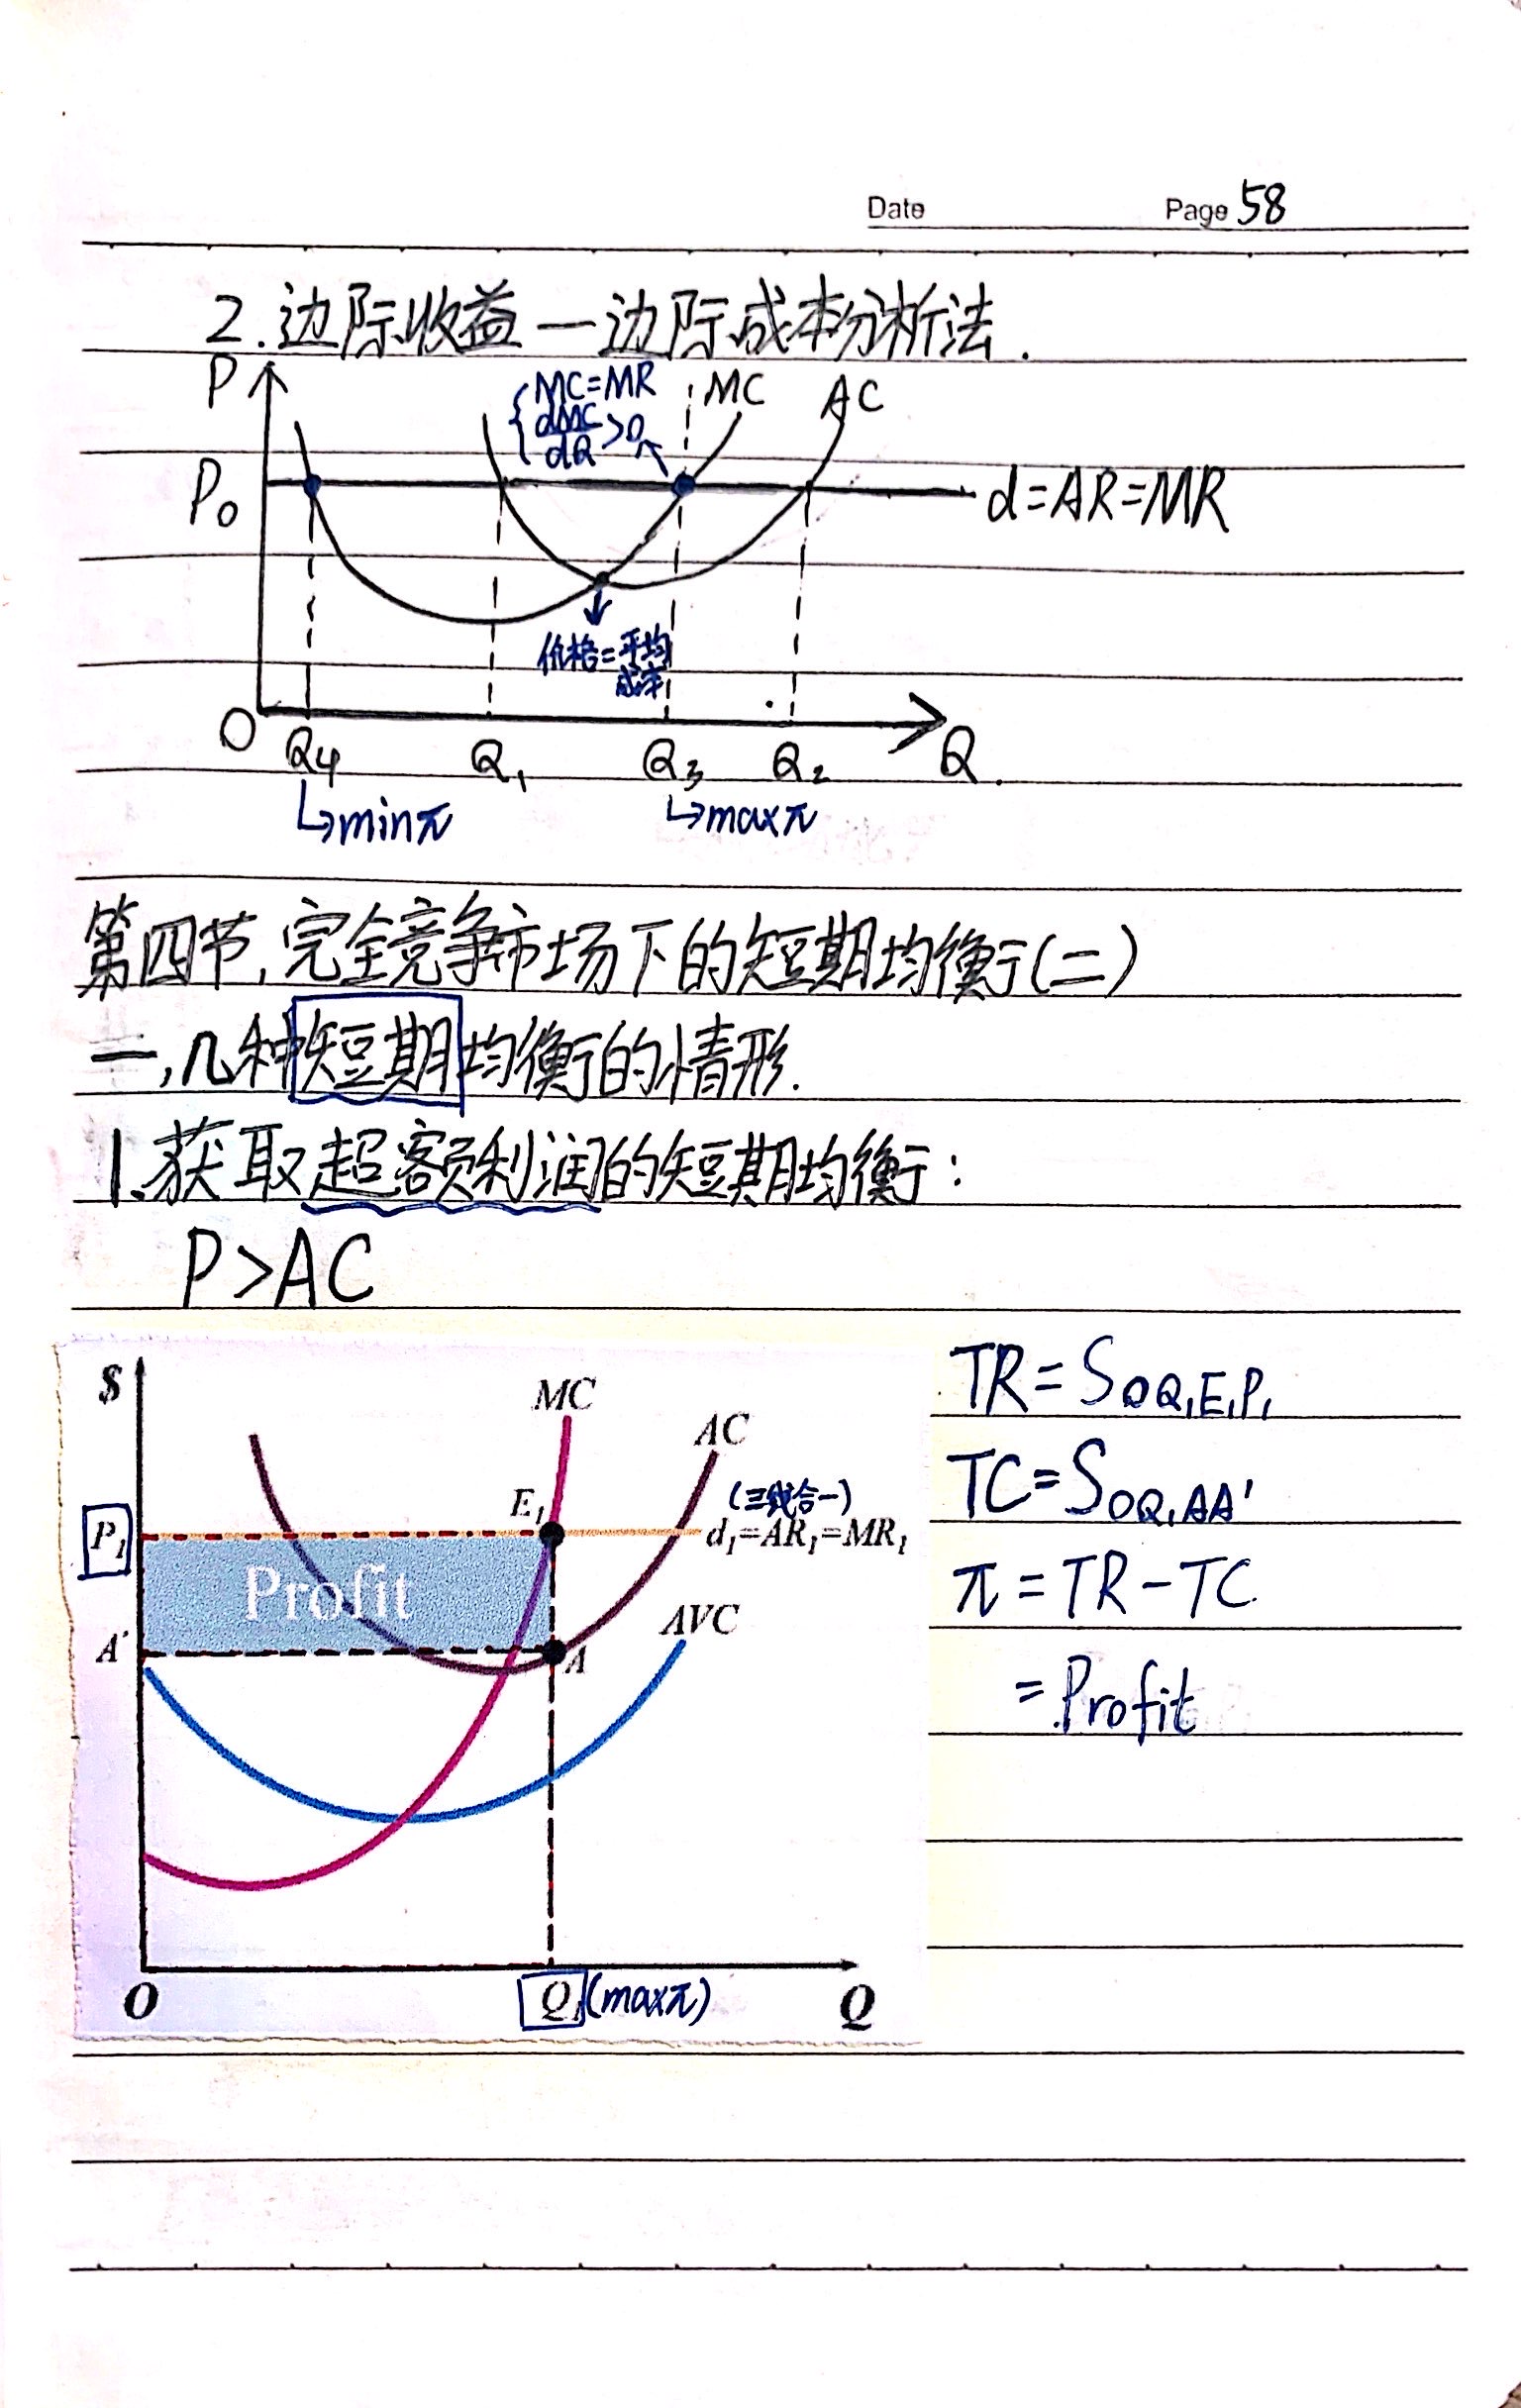 Date Page 58
2.边际收益一边际成本分析法.
P
MC=MR
dMC
dQ
>0
MC
AC
P₀
d=AR=MR
价格=平均
成本
O Q₄ Q₁ Q₃ Q₂ Q
↳minπ ↳maxπ
第四节,完全竞争市场下的短期均衡(二)
一,几种短期均衡的情形.
1.获取超额利润的短期均衡:
P>AC
$
MC
AC
(三线合一)
E₁
P₁
d₁=AR₁=MR₁
Profit
AVC
A'
A
O Q₁(maxπ) Q
TR=S OQ₁E₁P₁
TC=S OQ₁AA'
π=TR-TC
=Profit